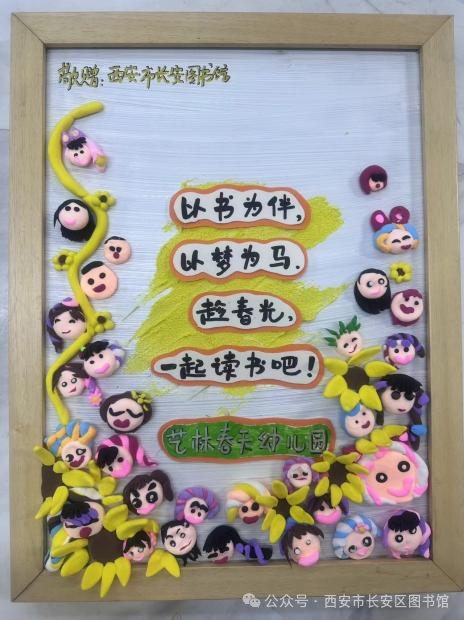 敬赠：西安市长安图书馆
以书为伴，
以梦为马．
趁春光，
一起读书吧！
艺林春天幼儿园
公众号·西安市长安区图书馆